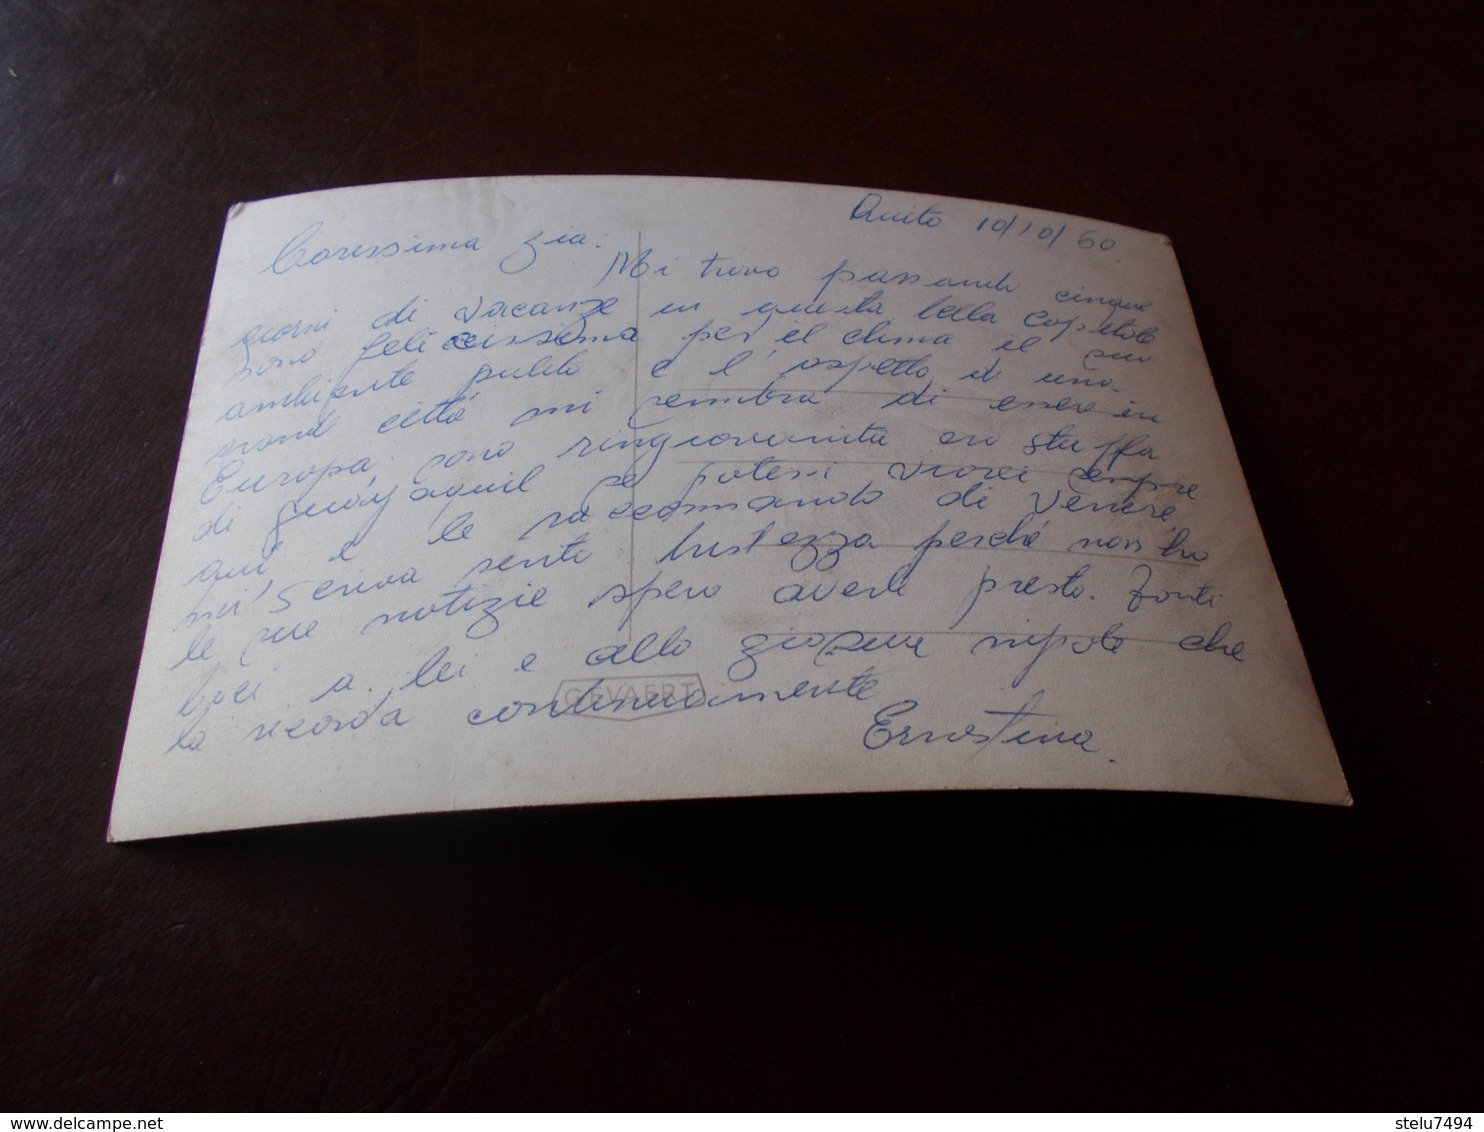 Quito 10/10/60.
Carissima zia:
Mi trovo passando cinque
giorni di vacanze in questa bella capitale
sono felicissima per il clima il suo
ambiente pulito e l'aspetto di una
grand città mi sembra di essere in
Europa. sono ringiovanita ero stuffa
di guayaquil se potessi vivrei sempre
qui e le raccomando di Venere
mi scriva sento tristezza perché non ho
le sue notizie spero averle presto. Tonti
baci a lei e allo giovane nipote che
la ricorda continuamente
GEVAERT
Ernestina.
www.delcampe.net
stelu7494